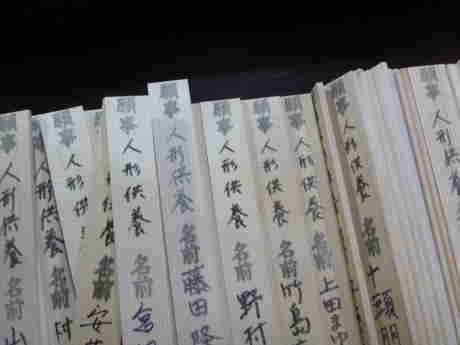 願事 人形供養
願事 人形供養 名前 十頭朋
願事 人形供養 名前 上田まゆ
願事 人形供養 名前 竹島
願事 人形供養 名前 野村
願事 人形供養 名前 藤田
願事 人形供養 名前 宮
人形供養 名前 安
願事 人形供養 名前
願事 人形供養 名前